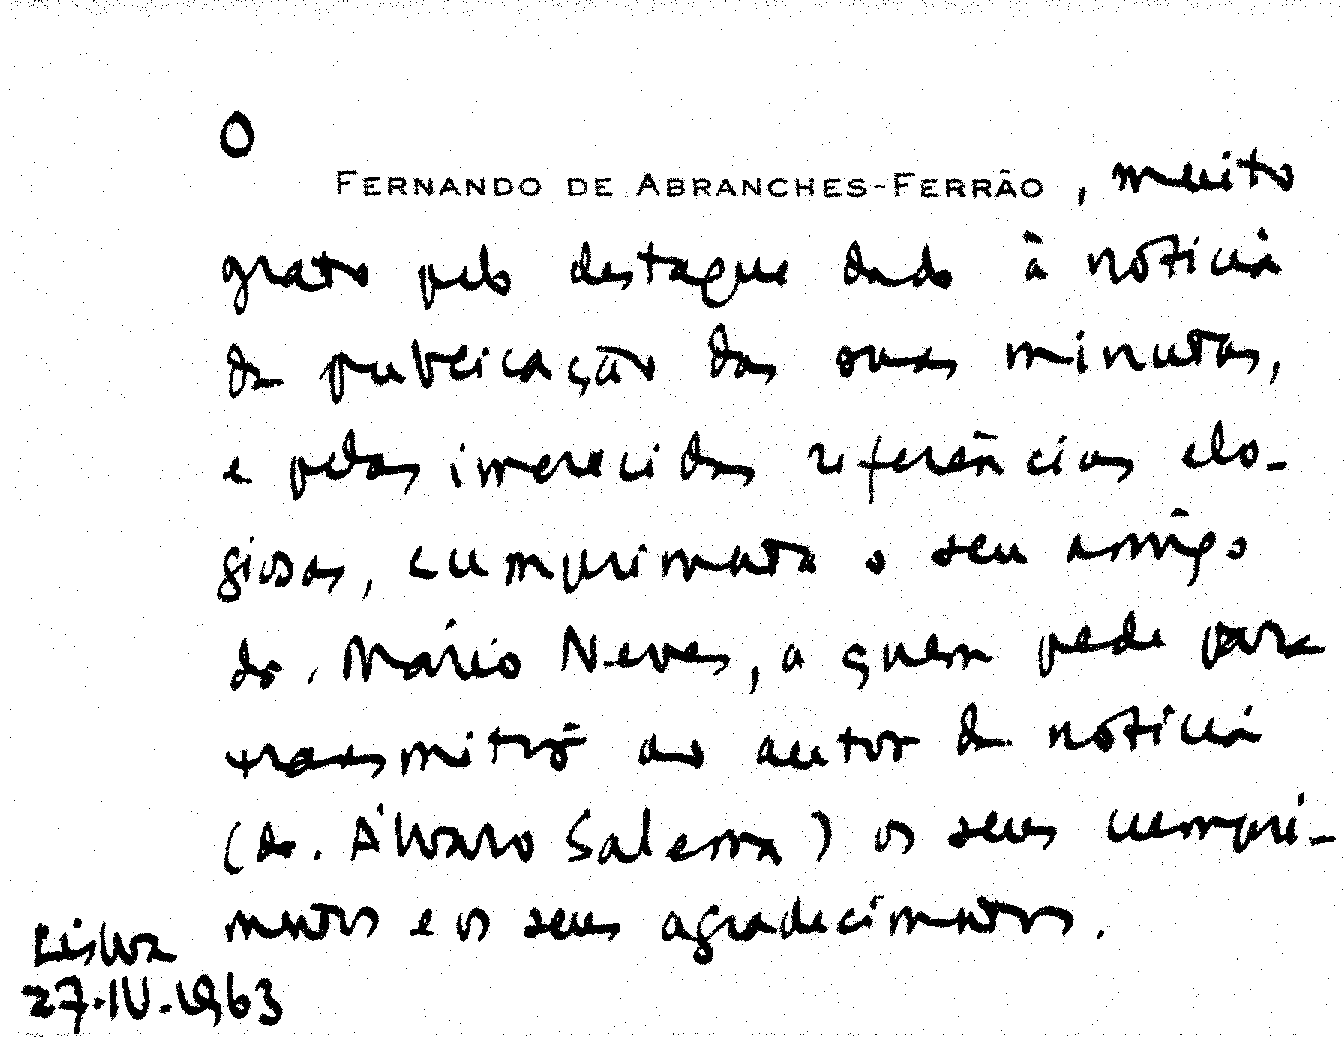 O
FERNANDO DE ABRANCHES-FERRÃO, muito
grato pelo destaque dado à notícia
da publicação das suas minutas,
e pelas imerecidas referências elo-
giosas, cumprimenta o seu amigo
dr. Mário Neves, a quem pede para
transmitir ao autor da notícia
(dr. Álvaro Salema) os seus cumpri-
mentos e os seus agradecimentos.
Lisboa
27-IV-1963